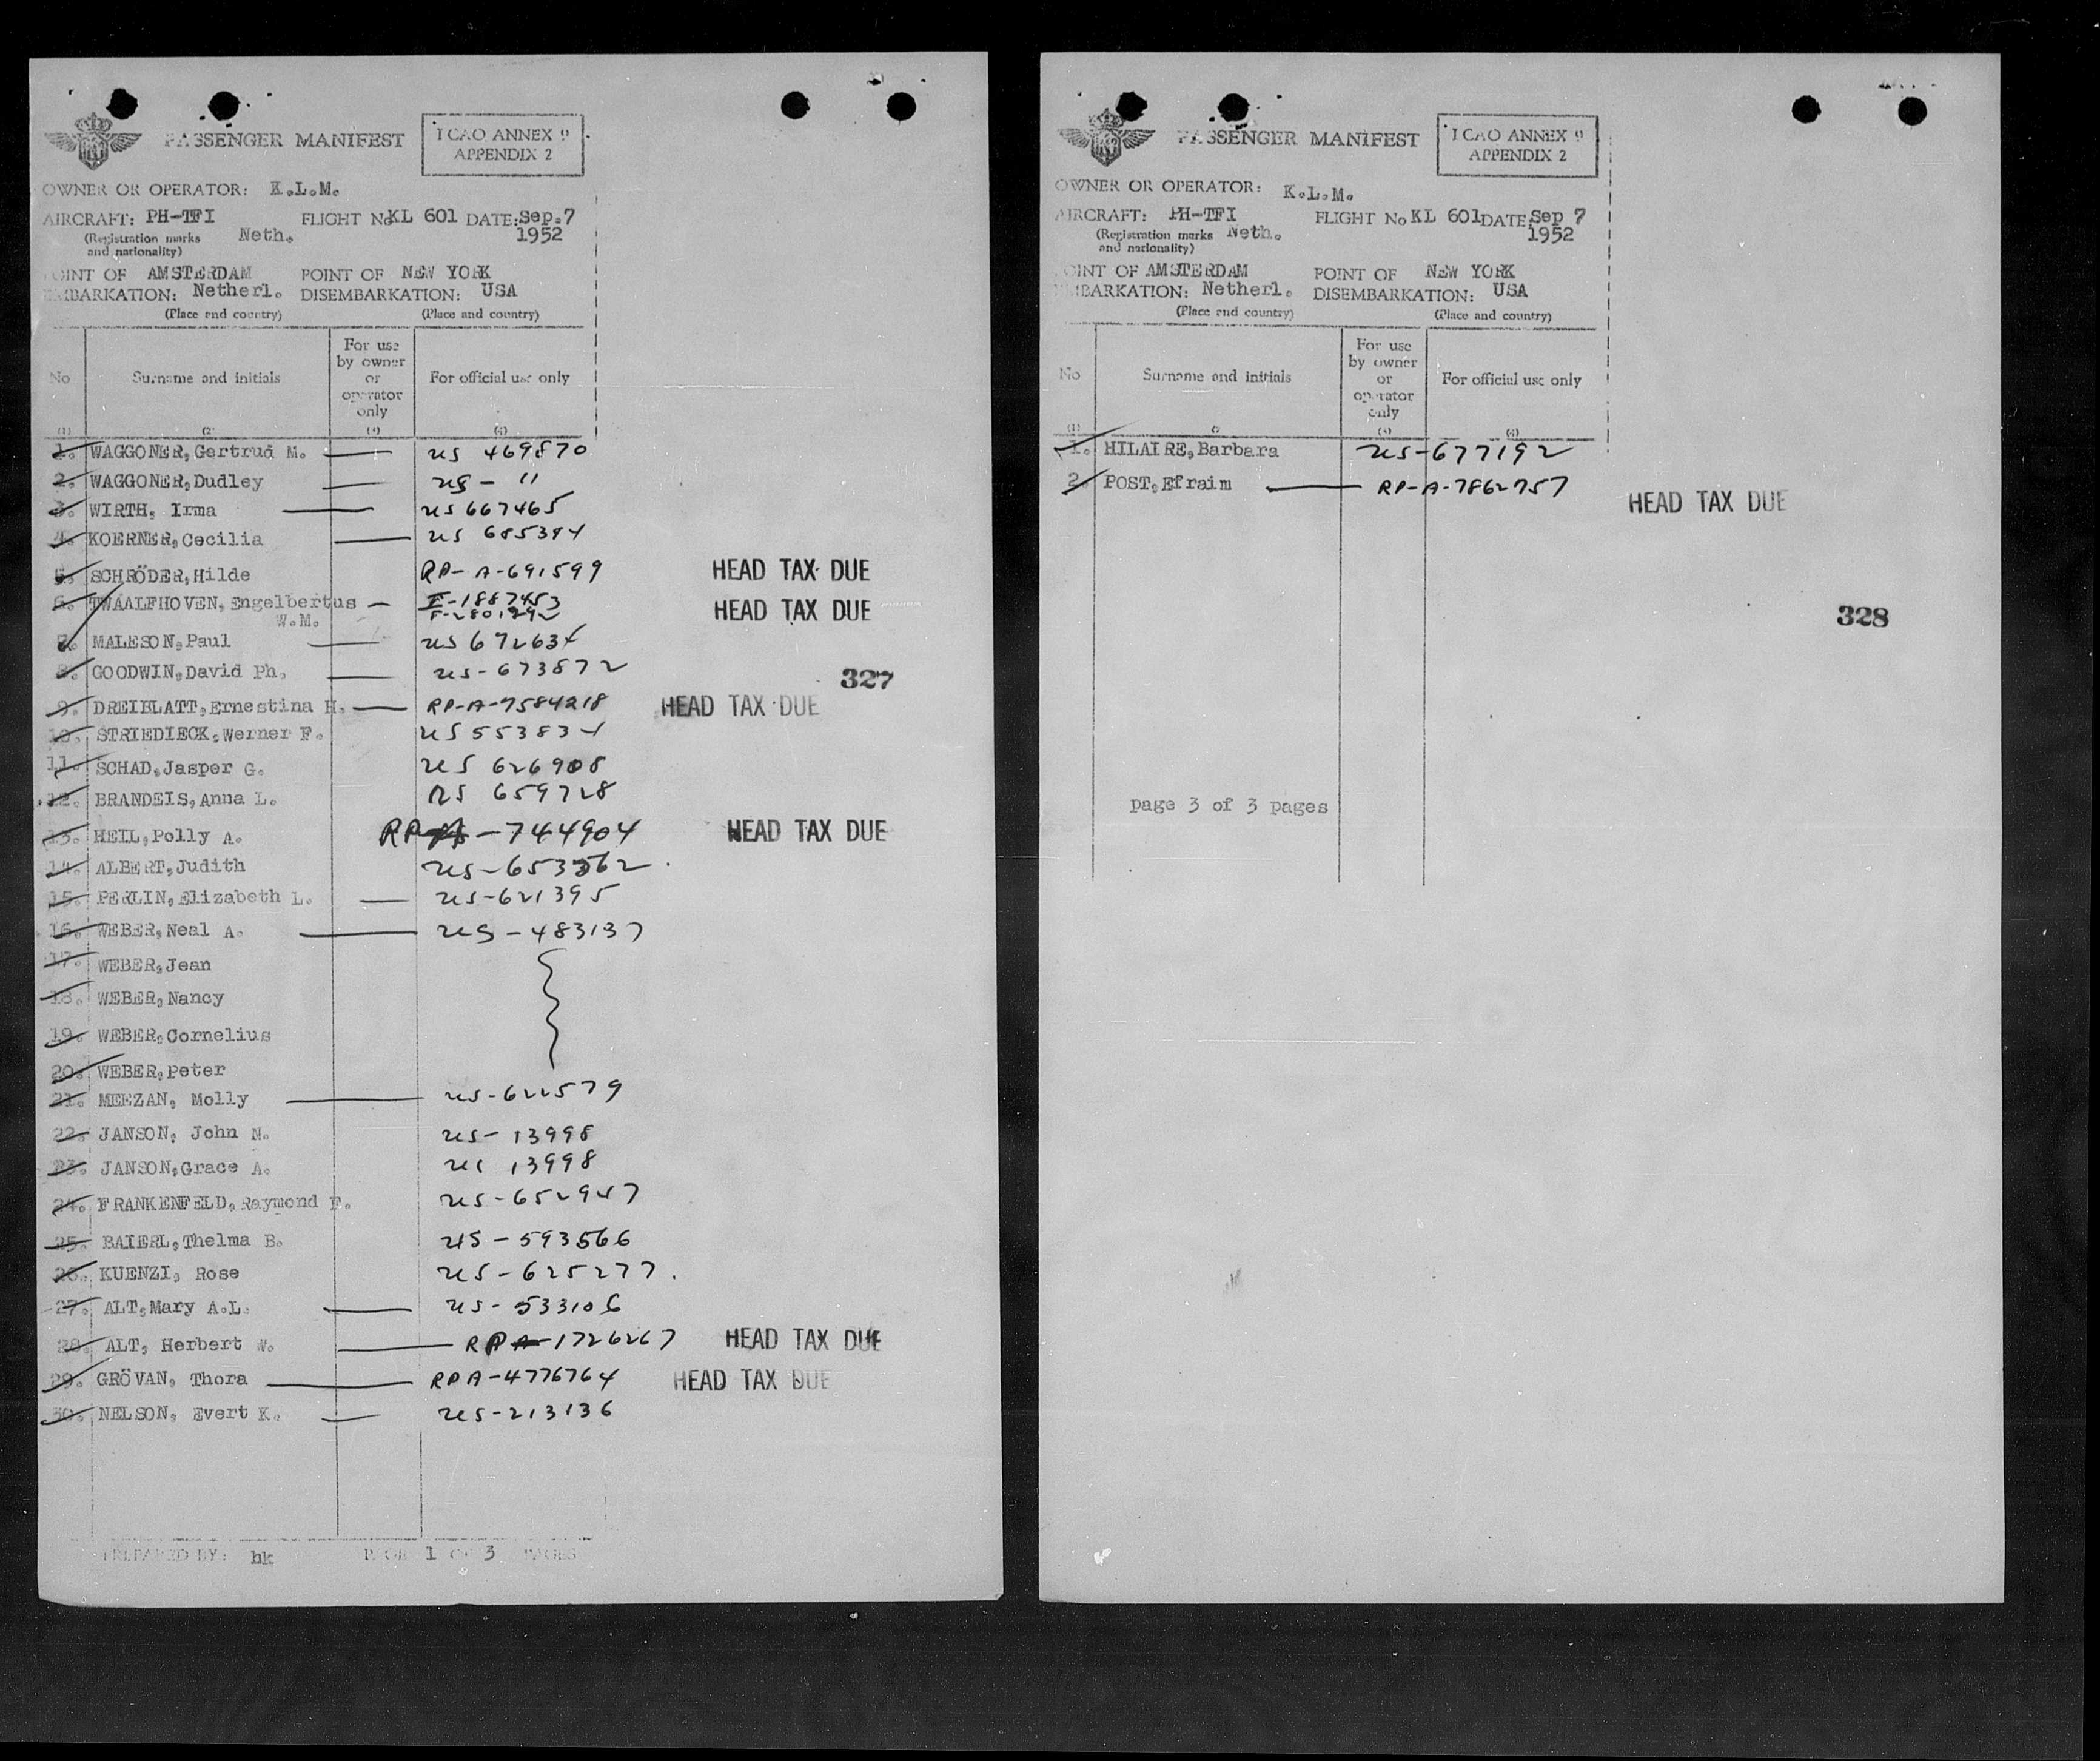 PASSENGER MANIFEST
ICAO ANNEX 9
APPENDIX 2
OWNER OR OPERATOR: K.L.M.
AIRCRAFT: PH-TFI FLIGHT No KL 601 DATE: Sep. 7
(Registration marks Neth. 1952
and nationality)
POINT OF AMSTERDAM POINT OF NEW YORK
EMBARKATION: Netherl. DISEMBARKATION: USA
(Place and country) (Place and country)
No Surname and initials For use by owner or operator only For official use only
(1) (2) (3) (4)
1. WAGGONER, Gertrud M. US 469870
2. WAGGONER, Dudley US - "
3. WIRTH, Irma US 667465
4. KOERNER, Cecilia US 685394
5. SCHRÖDER, Hilde RP-A-691599 HEAD TAX DUE
6. TWAALFHOVEN, Engelbertus I-1887453 HEAD TAX DUE
W.M.
7. MALESON, Paul US 672634
8. GOODWIN, David Ph. US-673872
327
9. DREIBLATT, Ernestina H. RP-A-7584218 HEAD TAX DUE
10. STRIEDIECK, Werner F. US 553834
11. SCHAD, Jasper G. US 626908
12. BRANDEIS, Anna L. US 659728
13. HEIL, Polly A. RPA-744904 HEAD TAX DUE
14. ALBERT, Judith US-653562
15. PERLIN, Elizabeth L. US-621395
16. WEBER, Neal A. US-483137
17. WEBER, Jean
18. WEBER, Nancy
19. WEBER, Cornelius
20. WEBER, Peter
21. MEEZAN, Molly US-622579
22. JANSON, John N. US-13998
23. JANSON, Grace A. US 13998
24. FRANKENFELD, Raymond F. US-652947
25. BAIERL, Thelma B. US-593566
26. KUENZI, Rose US-625277.
27. ALT, Mary A.L. US-533106
28. ALT, Herbert W. RPA-1726267 HEAD TAX DUE
29. GRÖVAN, Thora RPA-4776764 HEAD TAX DUE
30. NELSON, Evert K. US-213136
PREPARED BY: hk PAGE 1 OF 3 PAGES
PASSENGER MANIFEST
ICAO ANNEX 9
APPENDIX 2
OWNER OR OPERATOR: K.L.M.
AIRCRAFT: PH-TFI FLIGHT No KL 601 DATE Sep 7
(Registration marks Neth. 1952
and nationality)
POINT OF AMSTERDAM POINT OF NEW YORK
EMBARKATION: Netherl. DISEMBARKATION: USA
(Place and country) (Place and country)
No Surname and initials For use by owner or operator only For official use only
(1) (3) (4)
1. HILAIRE, Barbara US-677192
2. POST, Efraim RP-A-7862757
HEAD TAX DUE
328
page 3 of 3 pages